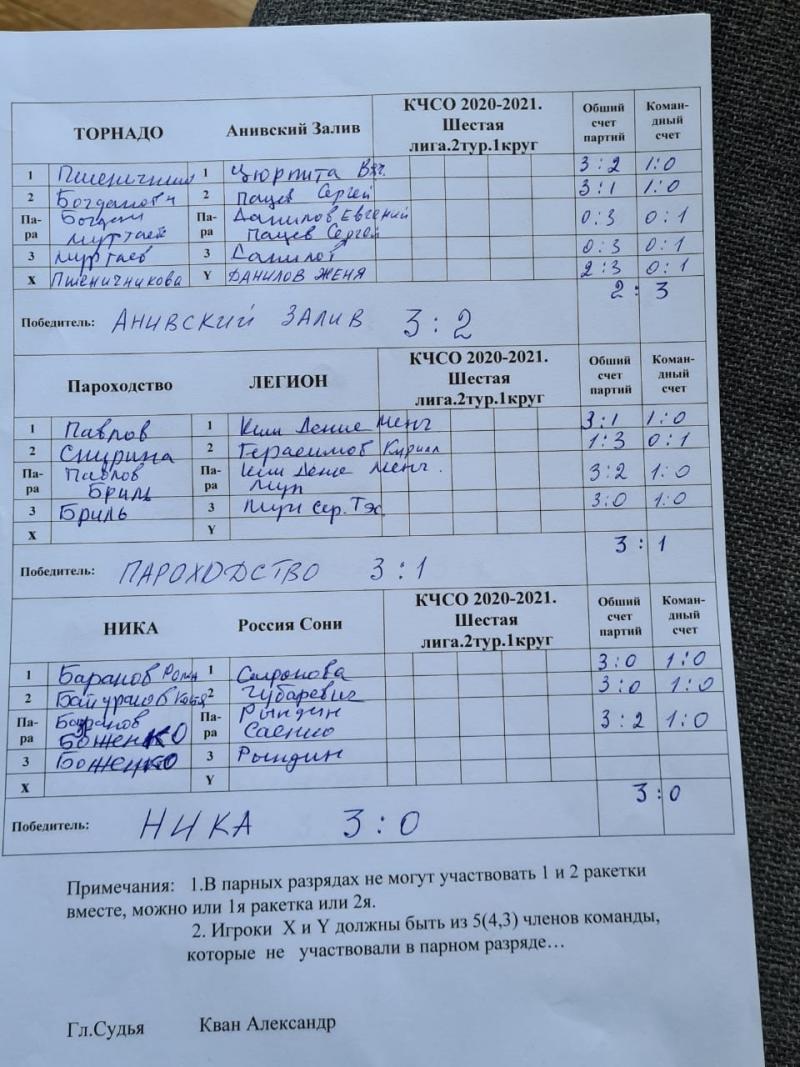 ТОРНАДО Анивский Залив КЧСО 2020-2021. Шестая лига.2тур.1круг Общий счет партий Коман-дный счет
1 1 Вяч. 3:2 1:0
2 Богданович 2 Пацев Сергей 3:1 1:0
Па-ра Богдан Муртаев Па-ра Данилов Евгений Пацев Сергей 0:3 0:1
3 Муртаев 3 Данилов 0:3 0:1
X Пшеничникова Y ДАНИЛОВ ЖЕНЯ 2:3 0:1
2:3
Победитель: АНИВСКИЙ ЗАЛИВ 3:2
Пароходство ЛЕГИОН КЧСО 2020-2021. Шестая лига.2тур.1круг Общий счет партий Коман-дный счет
1 Павлов 1 Ким 3:1 1:0
2 Смурина 2 Герасимов Кирилл 1:3 0:1
Па-ра Павлов Бриль Па-ра Ким Мун 3:2 1:0
3 Бриль 3 Мун 3:0 1:0
X Y
3:1
Победитель: ПАРОХОДСТВО 3:1
НИКА Россия Сони КЧСО 2020-2021. Шестая лига.2тур.1круг Общий счет партий Коман-дный счет
1 Баранов 1 3:0 1:0
2 2 Губаревич 3:0 1:0
Па-ра Баранов Боженко Па-ра Рындин Саенко 3:2 1:0
3 Боженко 3 Рындин
X Y
3:0
Победитель: НИКА 3:0
Примечания: 1.В парных разрядах не могут участвовать 1 и 2 ракетки
вместе, можно или 1я ракетка или 2я.
2. Игроки X и Y должны быть из 5(4,3) членов команды,
которые не участвовали в парном разряде…
Гл.Судья Кван Александр